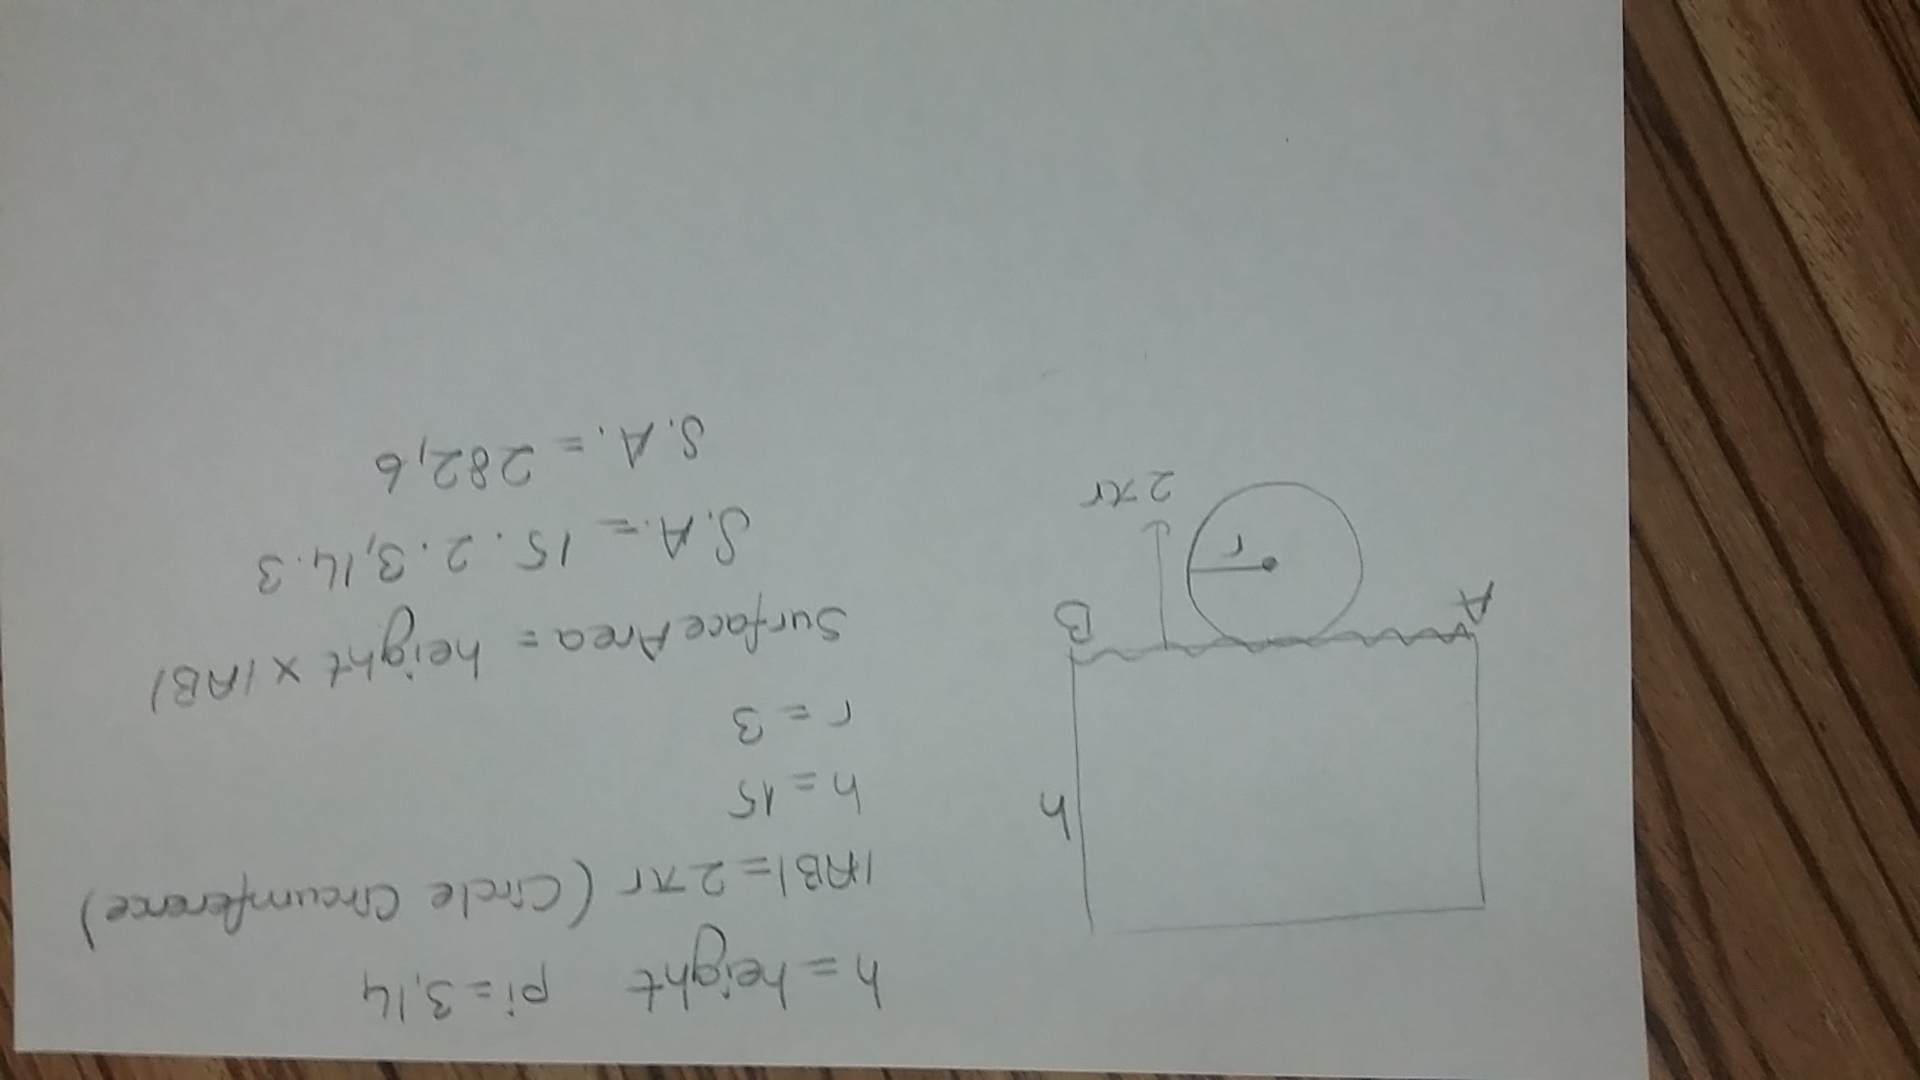 h = height pi = 3,14
|AB| = 2πr (Circle Circumference)
h = 15
r = 3
Surface Area = height x |AB|
S.A. = 15 . 2 . 3,14 . 3
S.A. = 282,6
h
A
B
r
2πr